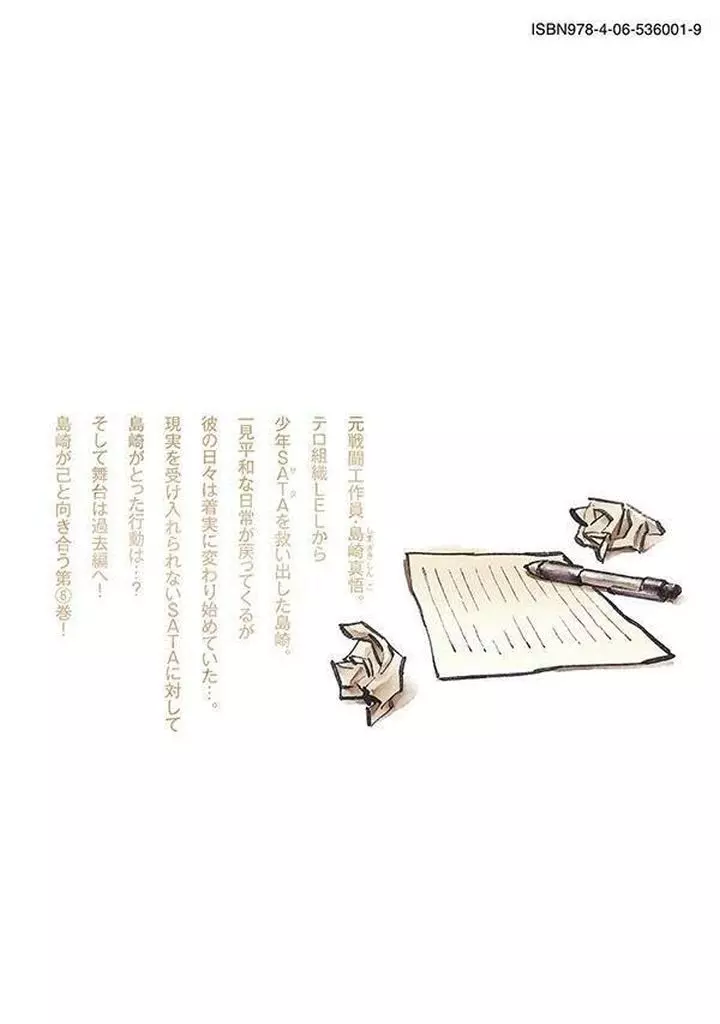 ISBN978-4-06-536001-9
元戦闘工作員・島崎真悟。
しまざきしんご
テロ組織LELから
少年SATAを救い出した島崎。
サタ
一見平和な日常が戻ってくるが
彼の日々は着実に変わり始めていた…。
現実を受け入れられないSATAに対して
島崎がとった行動は…?
そして舞台は過去編へ!
島崎が己と向き合う第⑧巻!